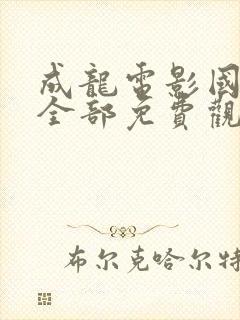 成龍電影國
全部免費觀
布尔克哈尔特